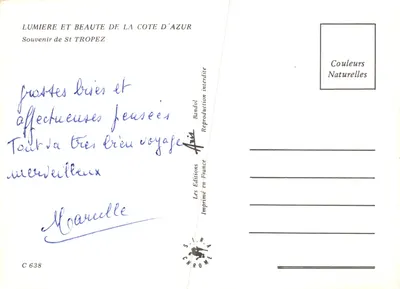 LUMIERE ET BEAUTE DE LA COTE D'AZUR
Souvenir de St TROPEZ
grosses bises et
affectueuses pensées
Tout va très bien voyage
merveilleux
C 638
Les Editions Aris Bandol
Imprimé en France Reproduction interdite
Couleurs
Naturelles